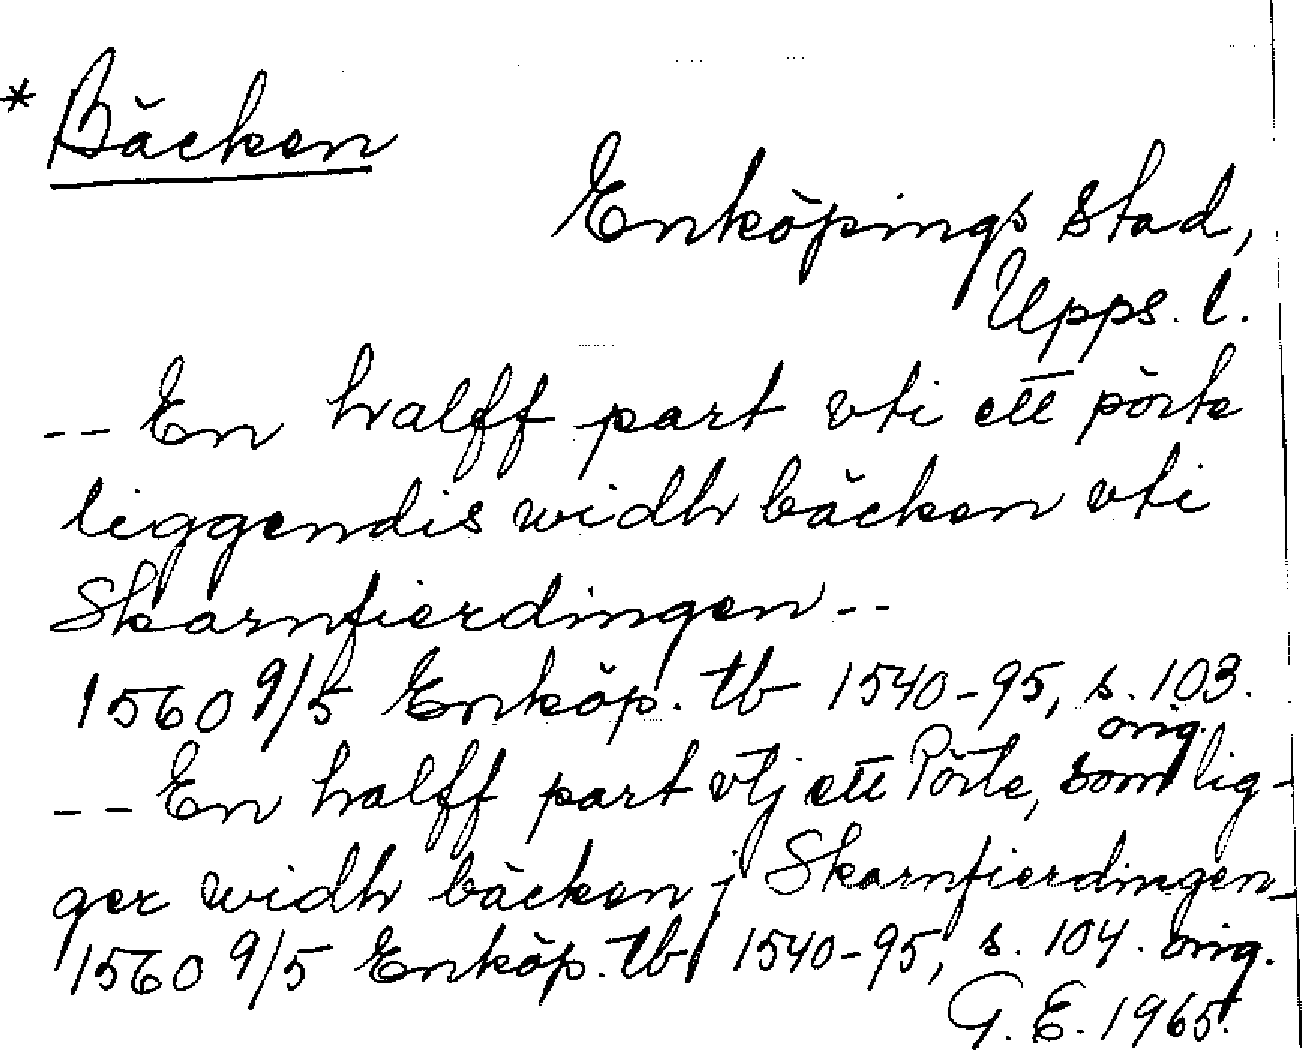 * Bäcken
Enköpings stad,
Upps. l.
-- En halff part vti ett pörte
liggendis widh bäcken vti
Skarnfierdingen --
1560 9/5 Enköp. tb 1540-95, s. 103.
orig.
-- En halff part vtj ett Pörte, som lig-
ger widh bäcken j Skarnfierdingen-
1560 9/5 Enköp. tb 1540-95, s. 104. orig.
G. E. 1965.